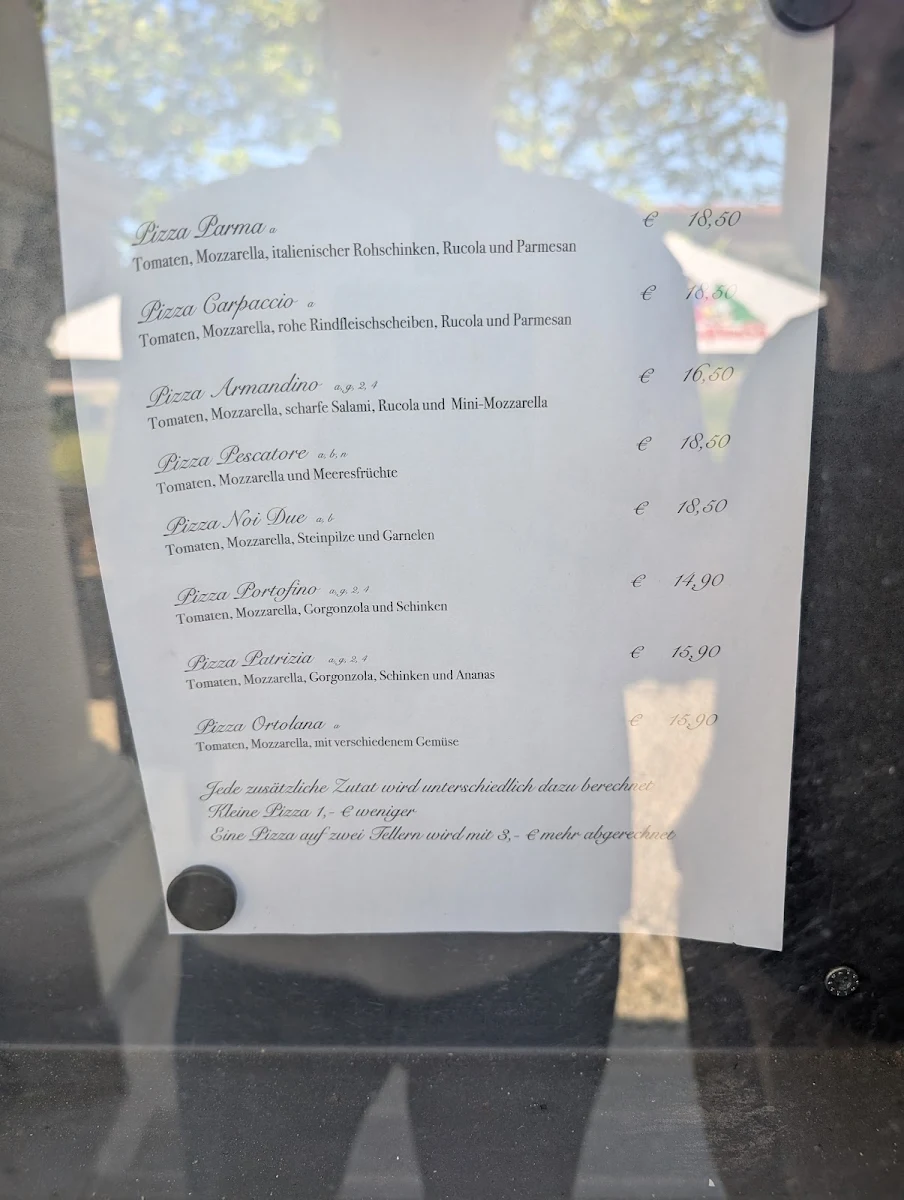 Pizza Parma a € 18,50
Tomaten, Mozzarella, italienischer Rohschinken, Rucola und Parmesan
Pizza Carpaccio a € 18,50
Tomaten, Mozzarella, rohe Rindfleischscheiben, Rucola und Parmesan
Pizza Armandino a, g, 2, 4 € 16,50
Tomaten, Mozzarella, scharfe Salami, Rucola und Mini-Mozzarella
Pizza Pescatore a, b, n € 18,50
Tomaten, Mozzarella und Meeresfrüchte
Pizza Noi Due a, b € 18,50
Tomaten, Mozzarella, Steinpilze und Garnelen
Pizza Portofino a, g, 2, 4 € 14,90
Tomaten, Mozzarella, Gorgonzola und Schinken
Pizza Patrizia a, g, 2, 4 € 15,90
Tomaten, Mozzarella, Gorgonzola, Schinken und Ananas
Pizza Ortolana a € 15,90
Tomaten, Mozzarella, mit verschiedenem Gemüse
Jede zusätzliche Zutat wird unterschiedlich dazu berechnet
Kleine Pizza 1,- € weniger
Eine Pizza auf zwei Tellern wird mit 3,- € mehr abgerechnet